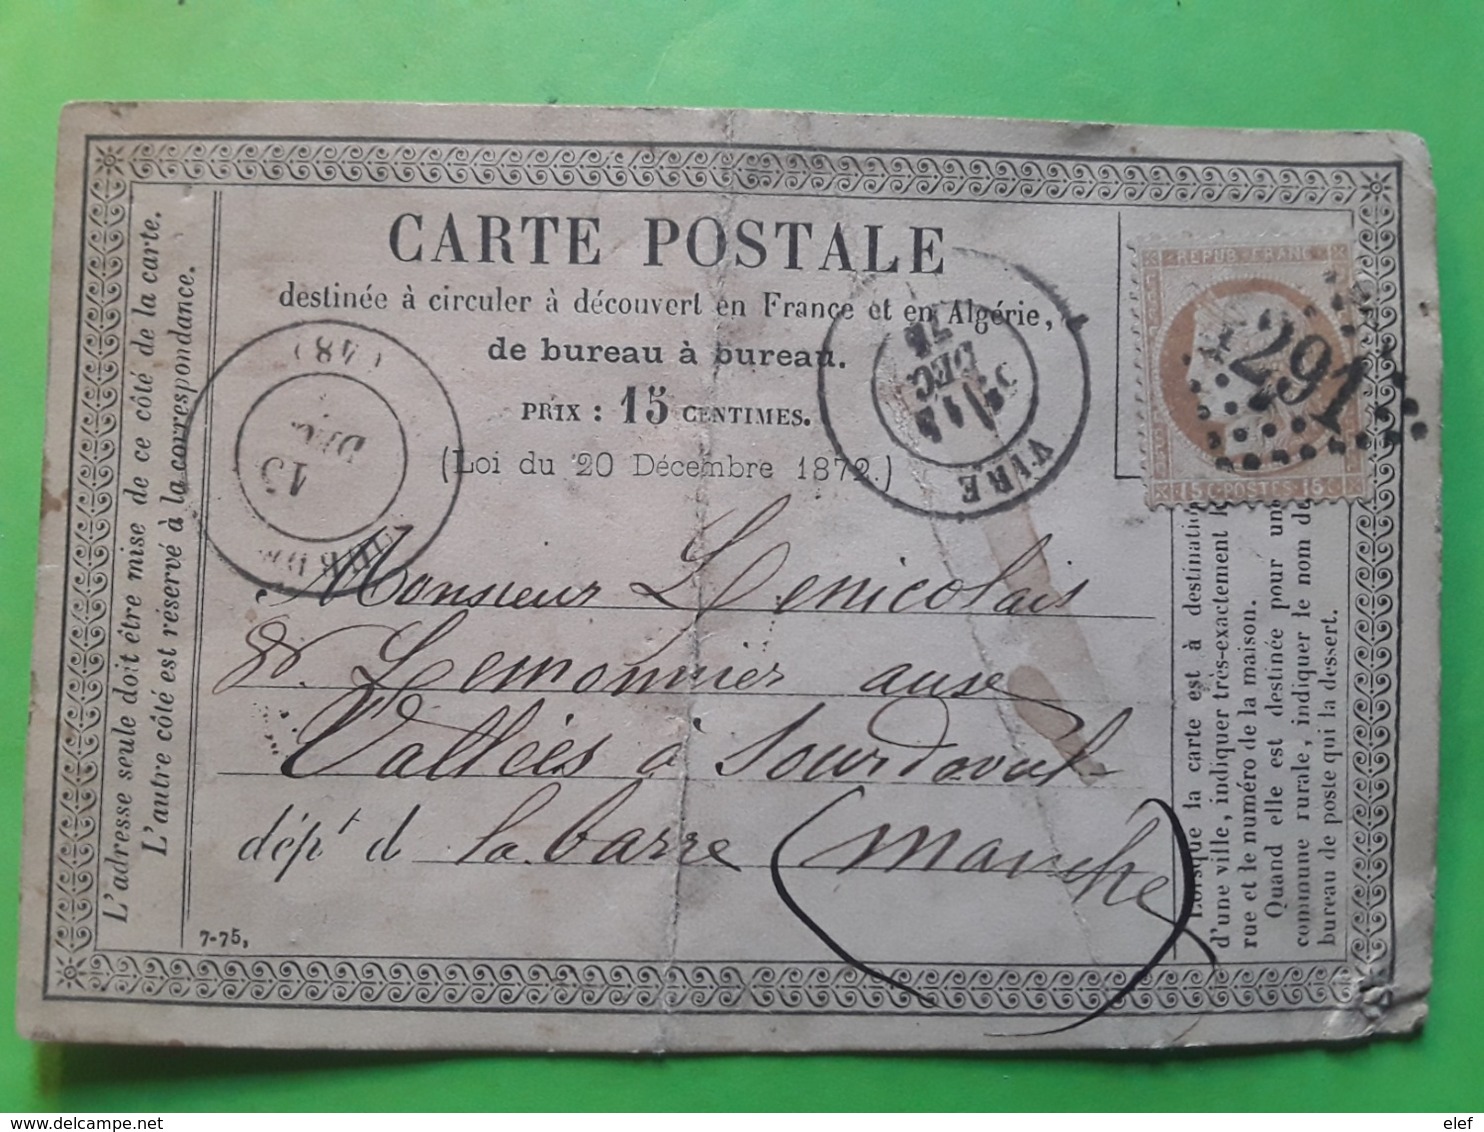 CARTE POSTALE
destinée à circuler à découvert en France et en Algérie,
de bureau à bureau.
PRIX : 15 CENTIMES.
(Loi du 20 Décembre 1872.)
REPUB FRANC
15 C POSTES 15 C
VIRE
DEC.
75
(48)
15
DEC.
Monsieur Lenicolais
& Lemonnier aux
Vallées à Sourdoval
dépt d la barre (Manche)
L'adresse seule doit être mise de ce côté de la carte.
L'autre côté est réservé à la correspondance.
Lorsque la carte est à destination
d'une ville, indiquer très-exactement
rue et le numéro de la maison.
Quand elle est destinée pour une
commune rurale, indiquer le nom de
bureau de poste qui la dessert.
7-75,
elef